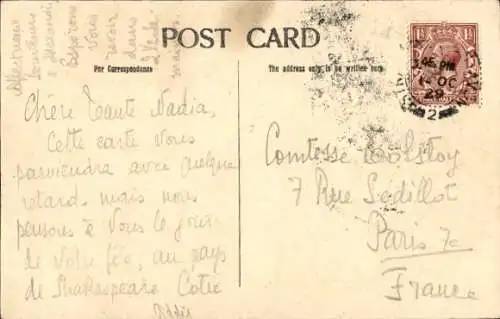 Affectueux
Espérons
Vous
revoir
dans
POST CARD
For Correspondence
The address only to be written here
1½
1½
45 PM
1 OC
29
2
Chère Tante Nadia,
Cette carte Vous
parviendra avec quelque
retard, mais nous
pensons à Vous le jour
de Votre fête, au pays
de Shakespeare. Votre
Addis
Comtesse Tolstoy
7 Rue Sédillot
Paris 7e
France